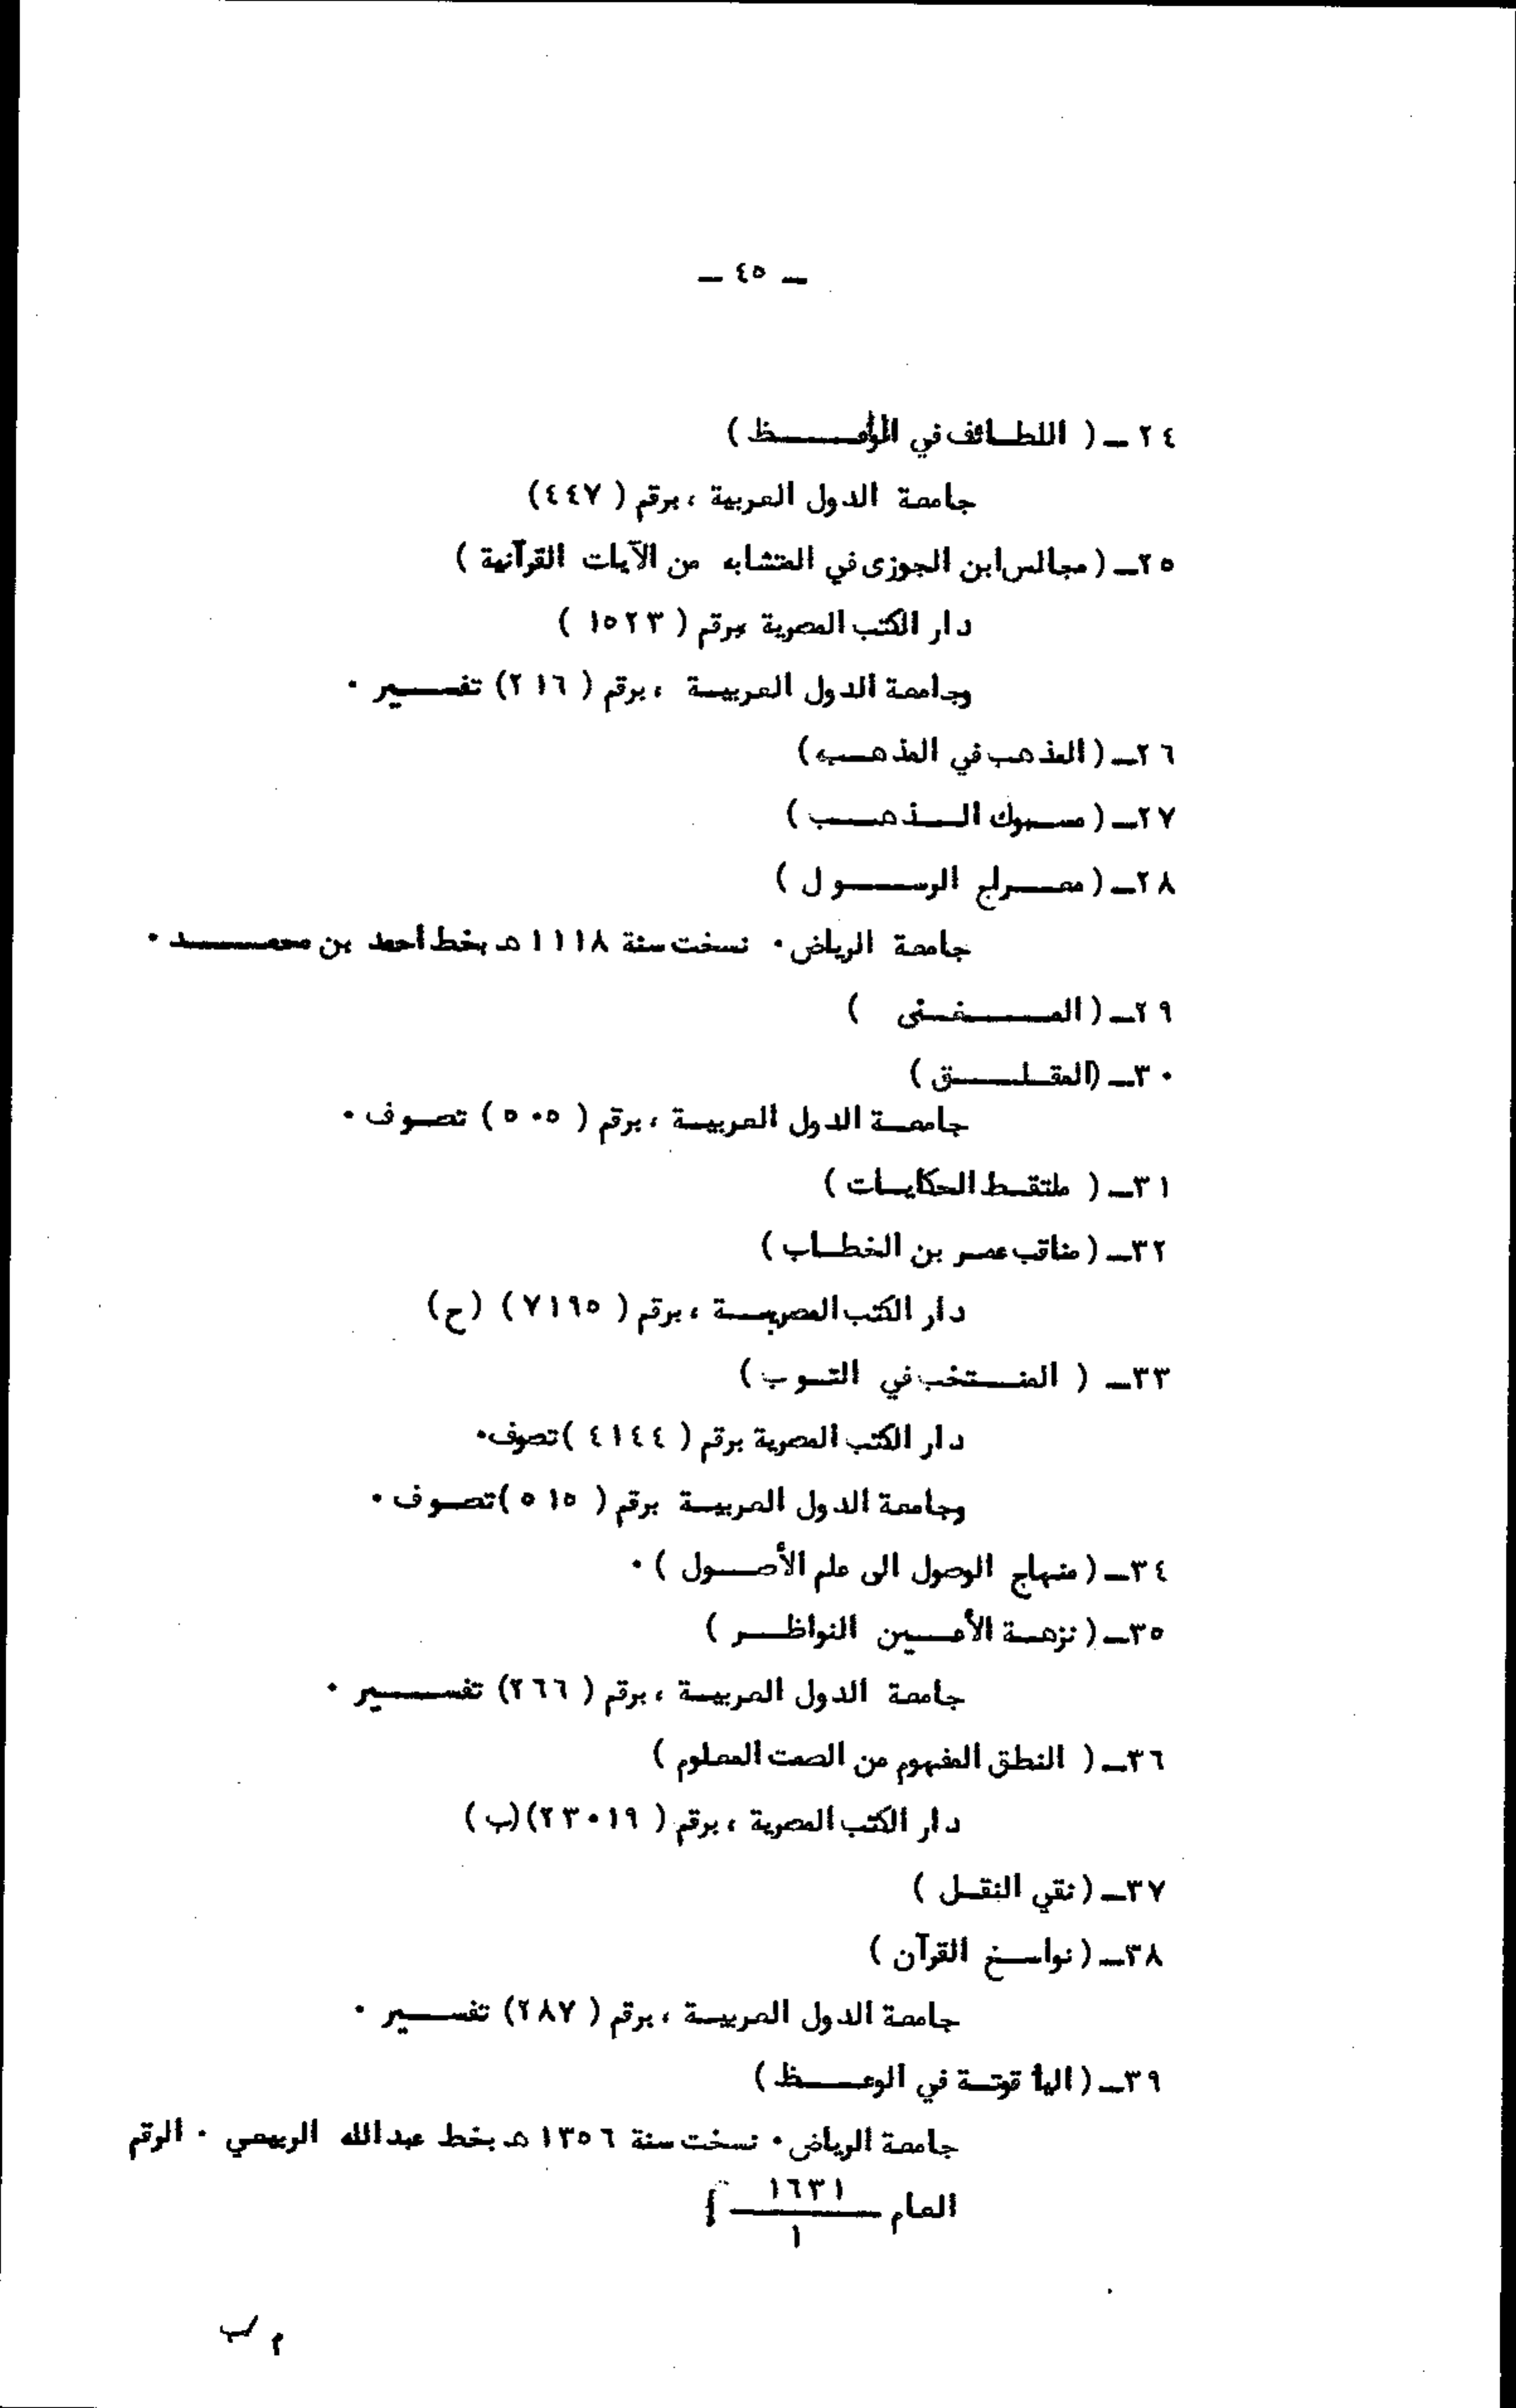 — ٤٥ —
٢٤ـ ( اللطائف في الوعظ )
جامعة الدول العربية ، برقم ( ٤٤٧ )
٢٥ـ ( مجالس ابن الجوزى في المتشابه من الآيات القرآنية )
دار الكتب المصرية برقم ( ١٥٢٣ )
وجامعة الدول العربية ، برقم ( ٢١٦ ) تفسير ٠
٢٦ـ ( المذهب في المذهب )
٢٧ـ ( مسبوك الذهب )
٢٨ـ ( معراج الرسول )
جامعة الرياض ٠ نسخت سنة ١١١٨ هـ بخط أحمد بن محمد ٠
٢٩ـ ( المغنى )
٣٠ـ ( المقلق )
جامعة الدول العربية ، برقم ( ٥٠٥ ) تصوف ٠
٣١ـ ( ملتقط الحكايات )
٣٢ـ ( مناقب عمر بن الخطاب )
دار الكتب المصرية ، برقم ( ٧١٩٥ ) (ح)
٣٣ـ ( المنتخب في التوب )
دار الكتب المصرية برقم ( ٤١٤٤ ) تصوف ٠
وجامعة الدول العربية برقم ( ٥١٥ ) تصوف ٠
٣٤ـ ( منهاج الوصول الى علم الأصول ) ٠
٣٥ـ ( نزهة الأعين النواظر )
جامعة الدول العربية ، برقم ( ٢٦٦ ) تفسير ٠
٣٦ـ ( النطق المفهوم من الصمت المعلوم )
دار الكتب المصرية ، برقم ( ٢٣٠١٩ ) (ب)
٣٧ـ ( نقي النقل )
٣٨ـ ( نواسخ القرآن )
جامعة الدول العربية ، برقم ( ٢٨٧ ) تفسير ٠
٣٩ـ ( اليأ قوتة في الوعظ )
جامعة الرياض ٠ نسخت سنة ١٣٥٦ هـ بخط عبدالله الربيعي ٠ الرقم
العام ١٦٣١
١